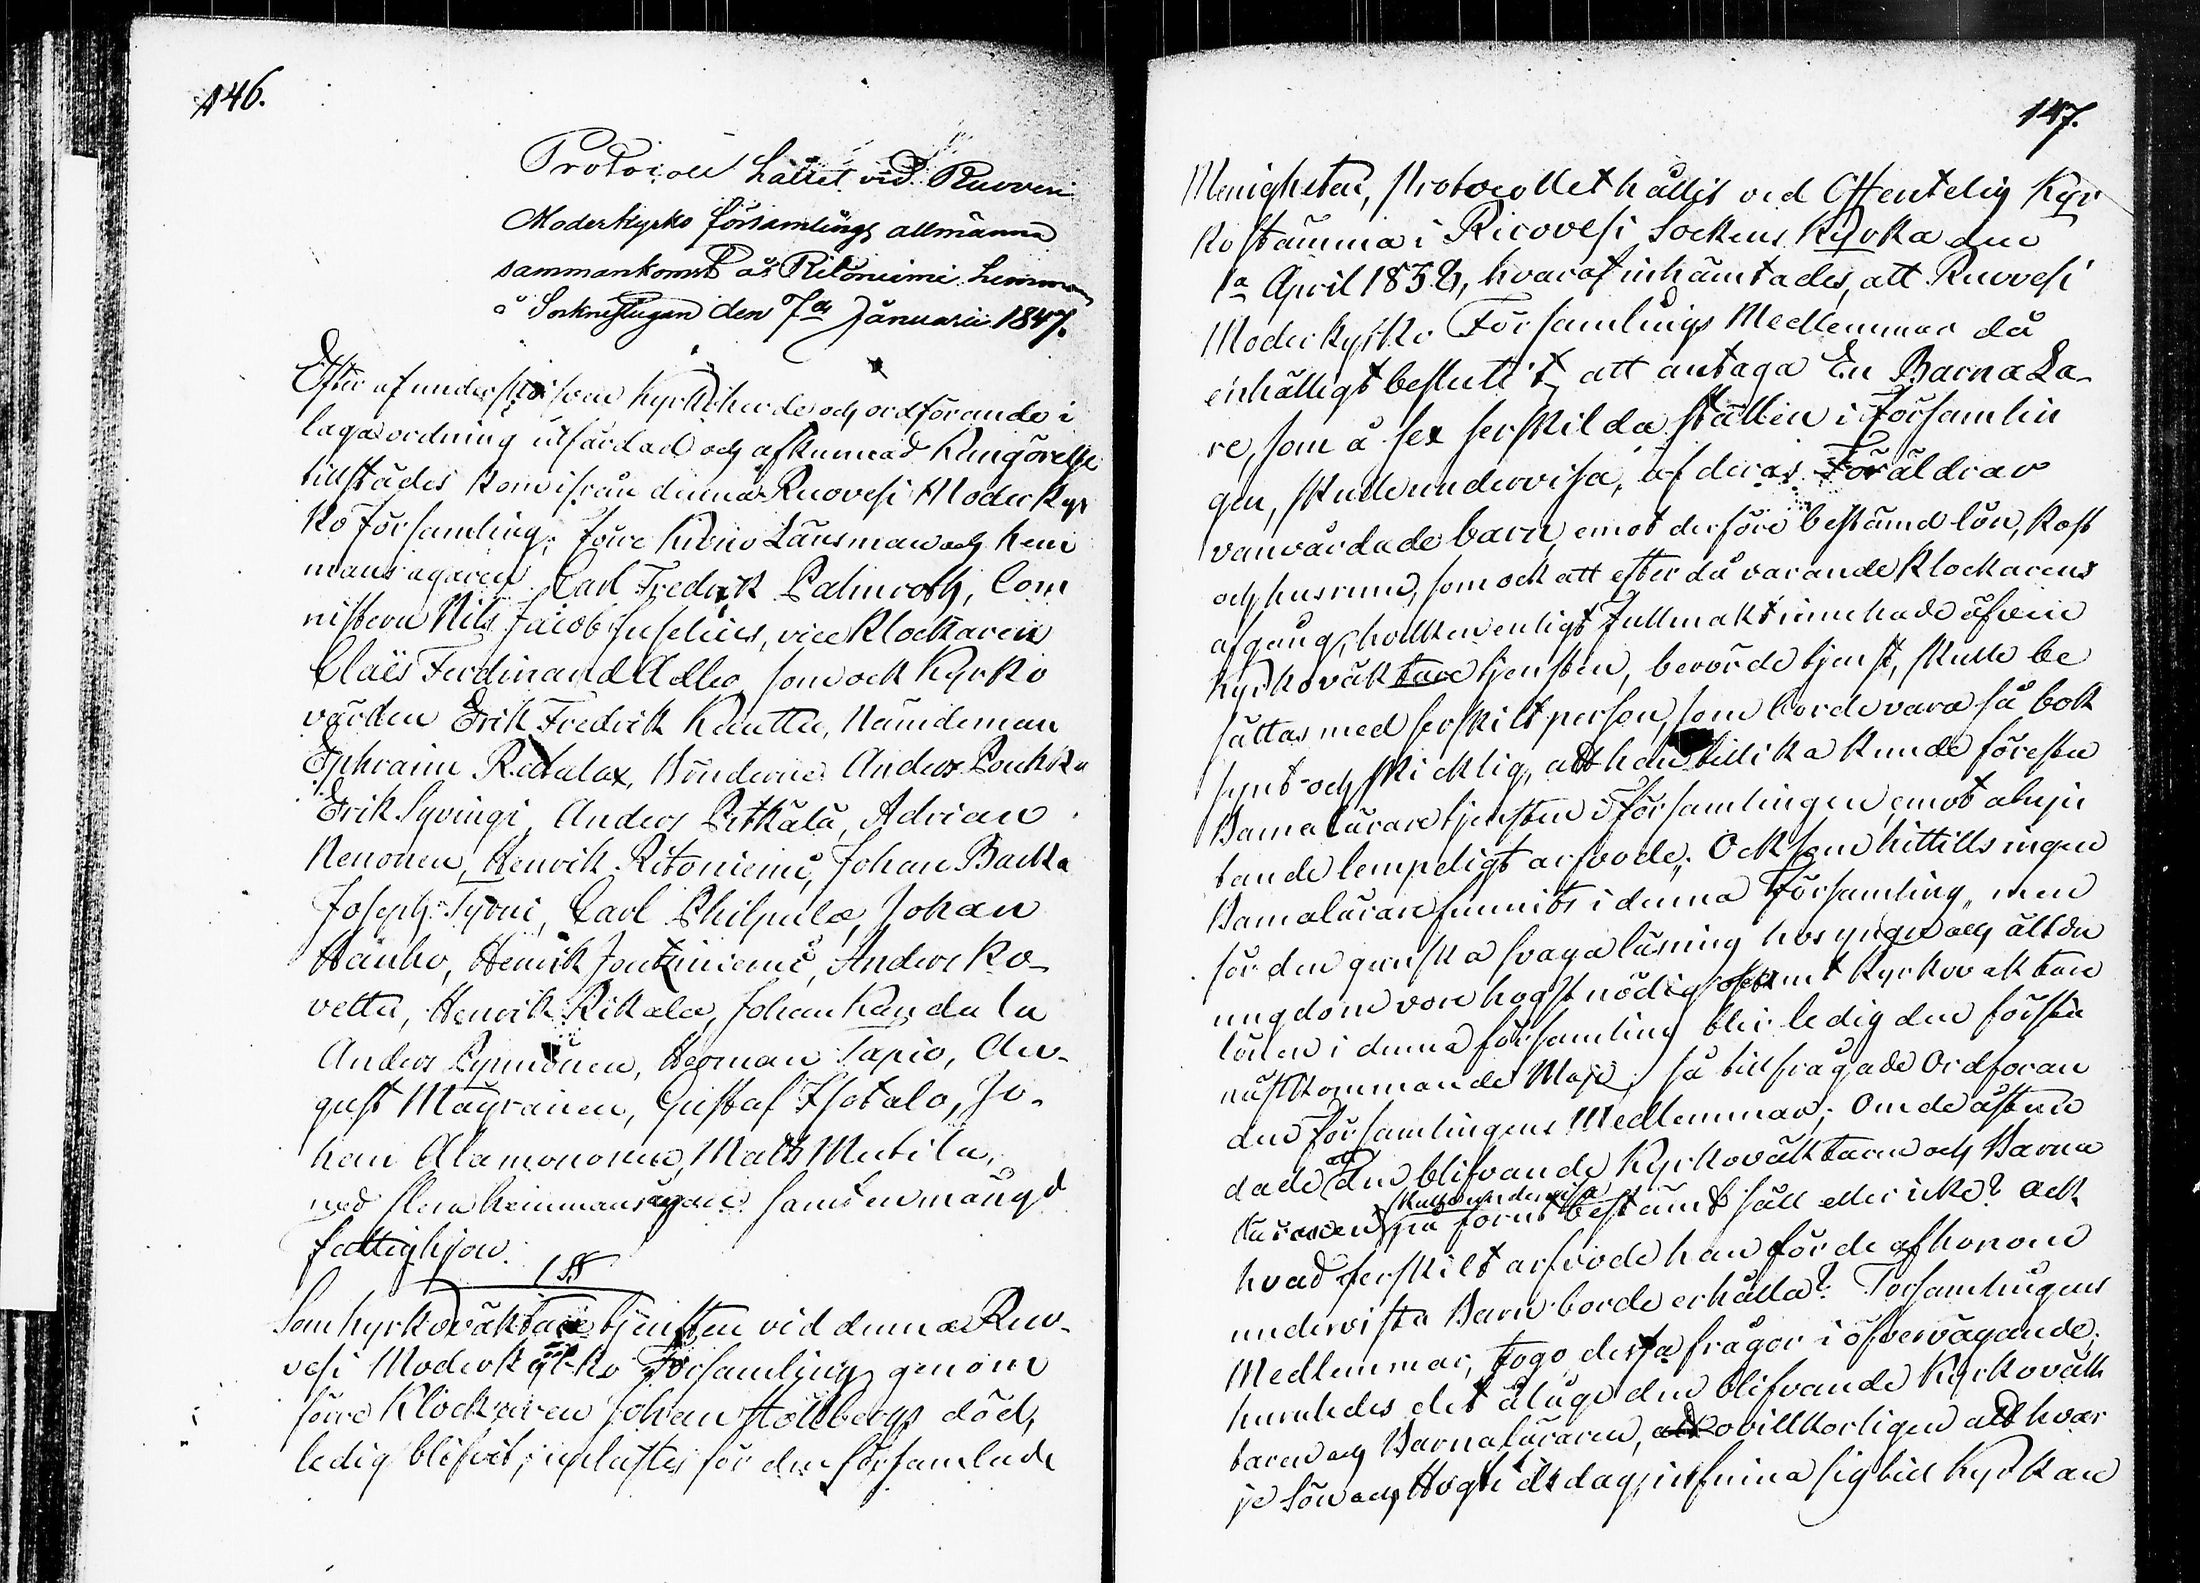 146.
Protocoll hållet vid Ruovesi
Moderkyrko församlings allmänna
sammankomst å Ritoniemi hemman
å Socknestugan den 7de Januarii 1847.
Efter af underskrifven Kyrkoherde och ordförande i
laga ordning utfärdad och afkunnad Kungörelse
tillstädes kom ifrån denna Ruovesi Moderkyr
ko församling; förre Krono Länsman och hem
mans egaren Carl Fredrik Palmroth, Com
nistern Nils Jacob Juselius, vice Klockaren
Claës Ferdinand Adler, som ock Kyrko
värden Erik Fredrik Kautta, Nämdeman
Ephraim Ritalax, Bönderne Anders Pouhka
Erik Syvingi, Anders Pitkälä, Adrian
Nenonen, Henrik Ritoniemi, Johan Backa
Joseph Tyrni, Carl Philpula, Johan
Hänho, Henrik Jouttiniemi, Anders Ko-
vetta, Henrik Rikala, Johan Haudala
Anders Pynnönen, Herman Tapio, Au-
gust Mäyränen, Gustaf Isotalo, Jo-
han Alamononen, Matts Mutila,
med flera hemmansägare samt en mängd
fattighjon.
1 §
Som Kyrkoväktare tjensten vid denna Ruo-
vesi Moderkyrko Församling genom
förre Klockaren Johan Hällbergs död,
ledig blifvit; uplästes för den församlade
147.
Menigheten, Protocollet hållit vid Offentelig Kyr
kostämma i Ruovesi Sockens Kyrka den
1a April 1838, hvaraf inhämtades, att Ruovesi
Moderkyrko Församlings Medlemmar då
enhälligt beslutit, att antaga En Barna Lä-
re, som å sex serskilda ställen i Församlin
gen, skulle undervisa, af deras Föräldrar
vanvårdade barn, emot derföre bestämd lön, kost
och husrum, som ock att efter då varande Klockarens
afgång, hvilken enligt Fullmakt innehade äfven
Kyrkoväktare tjensten, berörde tjenst, skulle be
sättas med serskilt person, som borde vara så bok
synt och skicklig, att han tillika kunde förestå
Barnalärare tjensten i Församlingen, emot åtnju
tande lempeligt arfvode; Och som hittills ingen
Barnalärare funnits i denna Församling, men
för den ganska svaga läsning hos yngre och äldre
ungdom vore högst nödig samt Kyrkovaktare
lönen i denna församling blir ledig den första
nästkommande Maji; så tillfrågade Ordföran
den församlingens Medlemmar; Om de åstun
dade att den blifvande Kyrkoväktaren och Barna
läraren skulle undervisa på förut bestämt säll eller icke? och
hvad serskilt arfvode han för de af honom
undervista Barn borde erhålla? Församlingens
Medlemmar, togo dessa frågor i öfvervägande;
hurudes det ålåge den blifvande Kyrkoväk
taren och Barnaläraren, ovillkorligen att hvar
je Sön och Högtidsdag, infinna sig vid Kyrkan